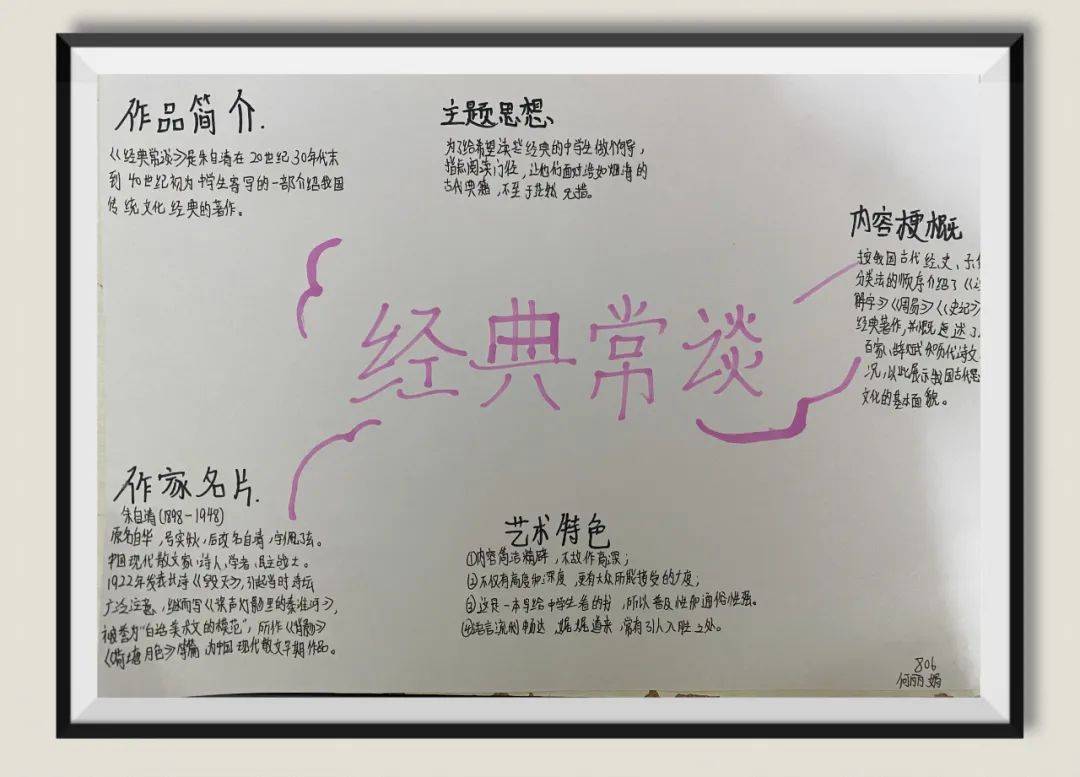 作品简介.
《经典常谈》是朱自清在20世纪30年代末
到40世纪初为中学生客写的一部介绍我国
传统文化经典的著作。
主题思想、
为了给希望读些经典的中学生做个向导,
指点阅读门径,让他们面对浩如烟海的
古代典籍,不至于茫然无措。
内容梗概
按我国古代经、史、子
分类法的顺序介绍了《
解字》《周易》《史记》
经典著作,并概述了
百家、辞赋和历代诗文
况,以此展示我国古代
文化的基本面貌。
经典常谈
作家名片.
朱自清(1898-1948)
原名自华,号实秋,后改名自清,字佩弦。
中国现代散文家、诗人、学者、民主战士。
1922年发表长诗《毁灭》,引起当时诗坛
广泛注意,继而写《桨声灯影里的秦淮河》,
被誉为“白话美术文的模范”,所作《背影》
《荷塘月色》等篇,为中国现代散文早期作品。
艺术特色
①内容简洁精辟,不故作高深;
②不仅有高度和深度,更有大众所能接受的广度;
③这是一本写给中学生看的书,所以普及性和通俗性强。
④语言流利畅达,娓娓道来,常有引人入胜之处。
806
何丽娟